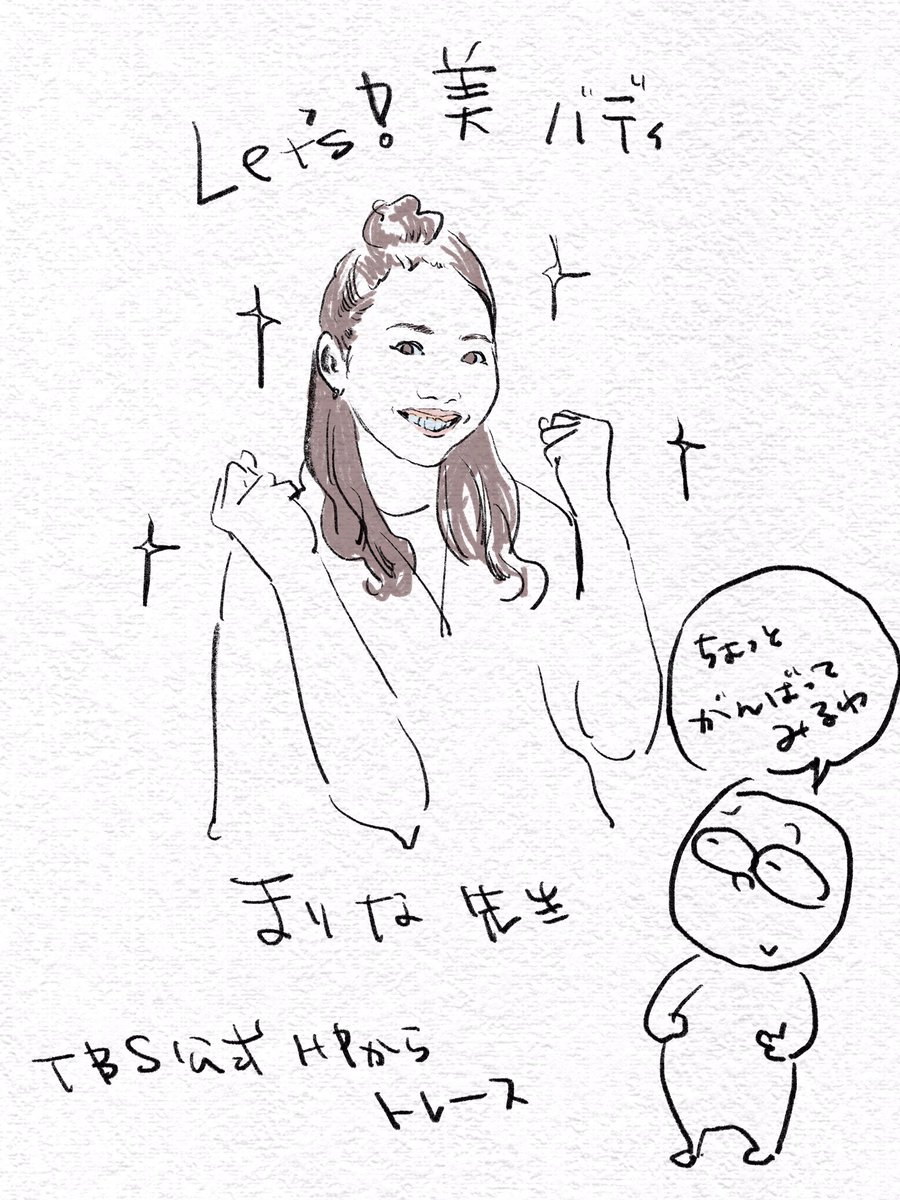 Let's! 美バディ
ちょっと
がんばって
みるわ
まりな先生
TBS公式HPから
トレース